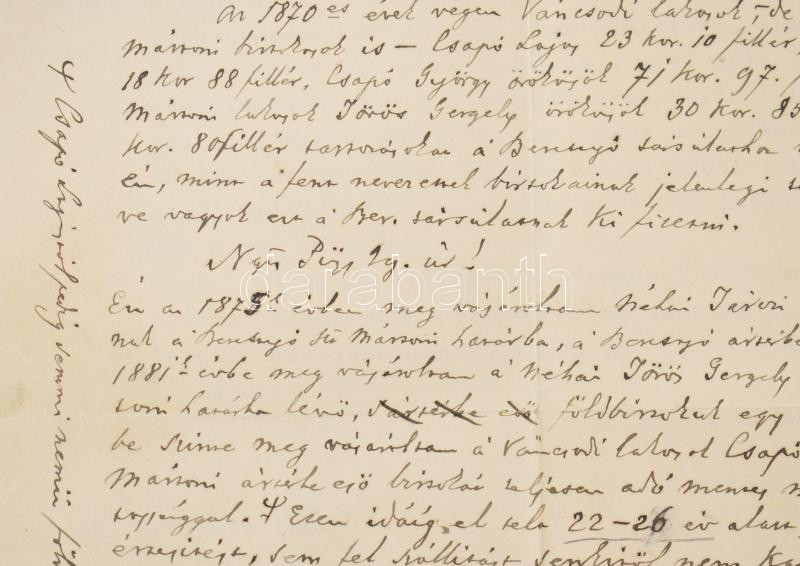 Az 1870 es évek vegen Váncsodi lakosok, - de
Mársoni birtokosok is - Csapó Lajos 23 Kor. 10 fillér,
18 Kor 88 fillér, Csapó György örökösök 71 Kor. 97.
Mársoni lakosok Törös Gergely örökösök 30 Kor. 85
Kor. 80 fillér tartozásokan a Berettyó társulatba
én, mint a fent nevezettek birtokainak jelenlegi
ve vagyok ezt a Ber. társulatnak ki fizetni.
Ngs Püsp. Ig. úr!
Én az 1875k évben meg vásároltam Néhai
nak a Berettyó Mársoni határba, a Berettyó ártérbe
1881k évbe meg vásároltam a Néhai Törös Gergely
soni határba lévő, ártérbe eső földbirtokuk egy
be szinte meg vásároltam a Váncsodi lakosok Csapó
Mársoni ártérbe eső birtokai teljesen adó mentes
sággal. Ezen idáig el telt 22-26 év alatt
értesitést, sem fel szóllitást senkitöl nem
Csapó pedig semmi nemű föl
darabanth